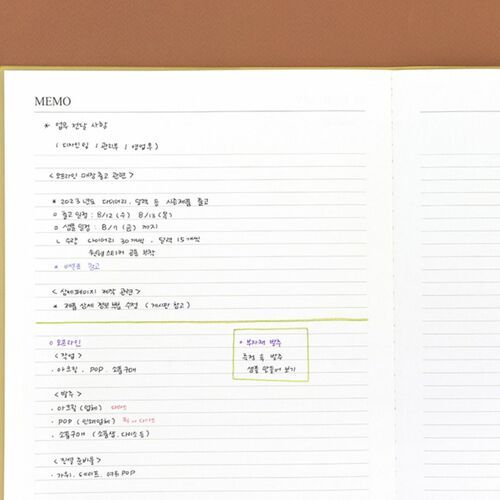 MEMO
* 업무 전달 사항
( 디자인팀 / 관리부 / 영업부 )
< 오프라인 매장 출고 관련 >
* 2023년도 다이어리, 달력 등 시즌제품 출고
o 출고 일정 : 8/12 (수) 8/13 (목)
o 샘플 일정 : 8/7 (금) 까지
ㄴ 수량 다이어리 30개씩, 달력 15개씩
스티커 공통 부착
참고
< 상세페이지 제작 관련 >
* 제품 상세 정보 수정 ( 게시판 참고 )
o 오프라인
< 작업 >
· 아크릴, POP, 소품구매
< 발주 >
· 아크릴 (업체)
· POP (인쇄업체)
· 소품구매 ( 소품샵, 다이소 등 )
· 부자재 발주
견적 후 발주
샘플 만들어 보기
준비물 >
· 가위, 테이프, 여유 POP